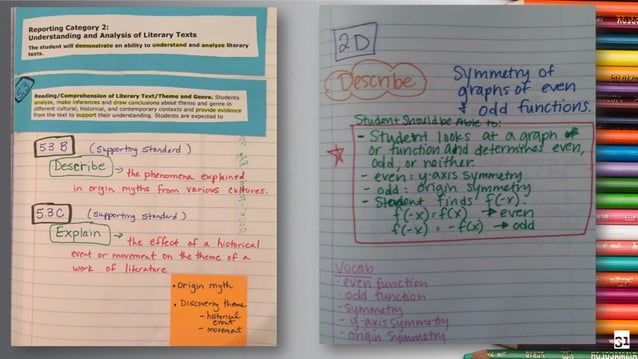 Reporting Category 2:
Understanding and Analysis of Literary Texts
The student will demonstrate an ability to understand and analyze literary
texts.
5.3
Reading/Comprehension of Literary Text/Theme and Genre. Students
analyze, make inferences and draw conclusions about theme and genre in
different cultural, historical, and contemporary contexts and provide evidence
from the text to support their understanding. Students are expected to
5.3 B (Supporting standard)
Describe → the phenomena explained
in origin myths from various cultures.
5.3 C (Supporting standard)
Explain → the effect of a historical
event or movement on the theme of a
work of literature
• origin myth
• Discovering theme
- historical
event
- movement
2D
Describe
Symmetry of
graphs of even
& odd functions.
Student Should be Able to:
- Student looks at a graph
or function and determines even,
odd, or neither.
- even: y-axis symmetry
- odd: origin symmetry
- Student finds f(-x):
f(-x) = f(x) → even
f(-x) = -f(x) → odd
Vocab
- even function
- odd function
- Symmetry
- y-axis symmetry
- origin symmetry
31